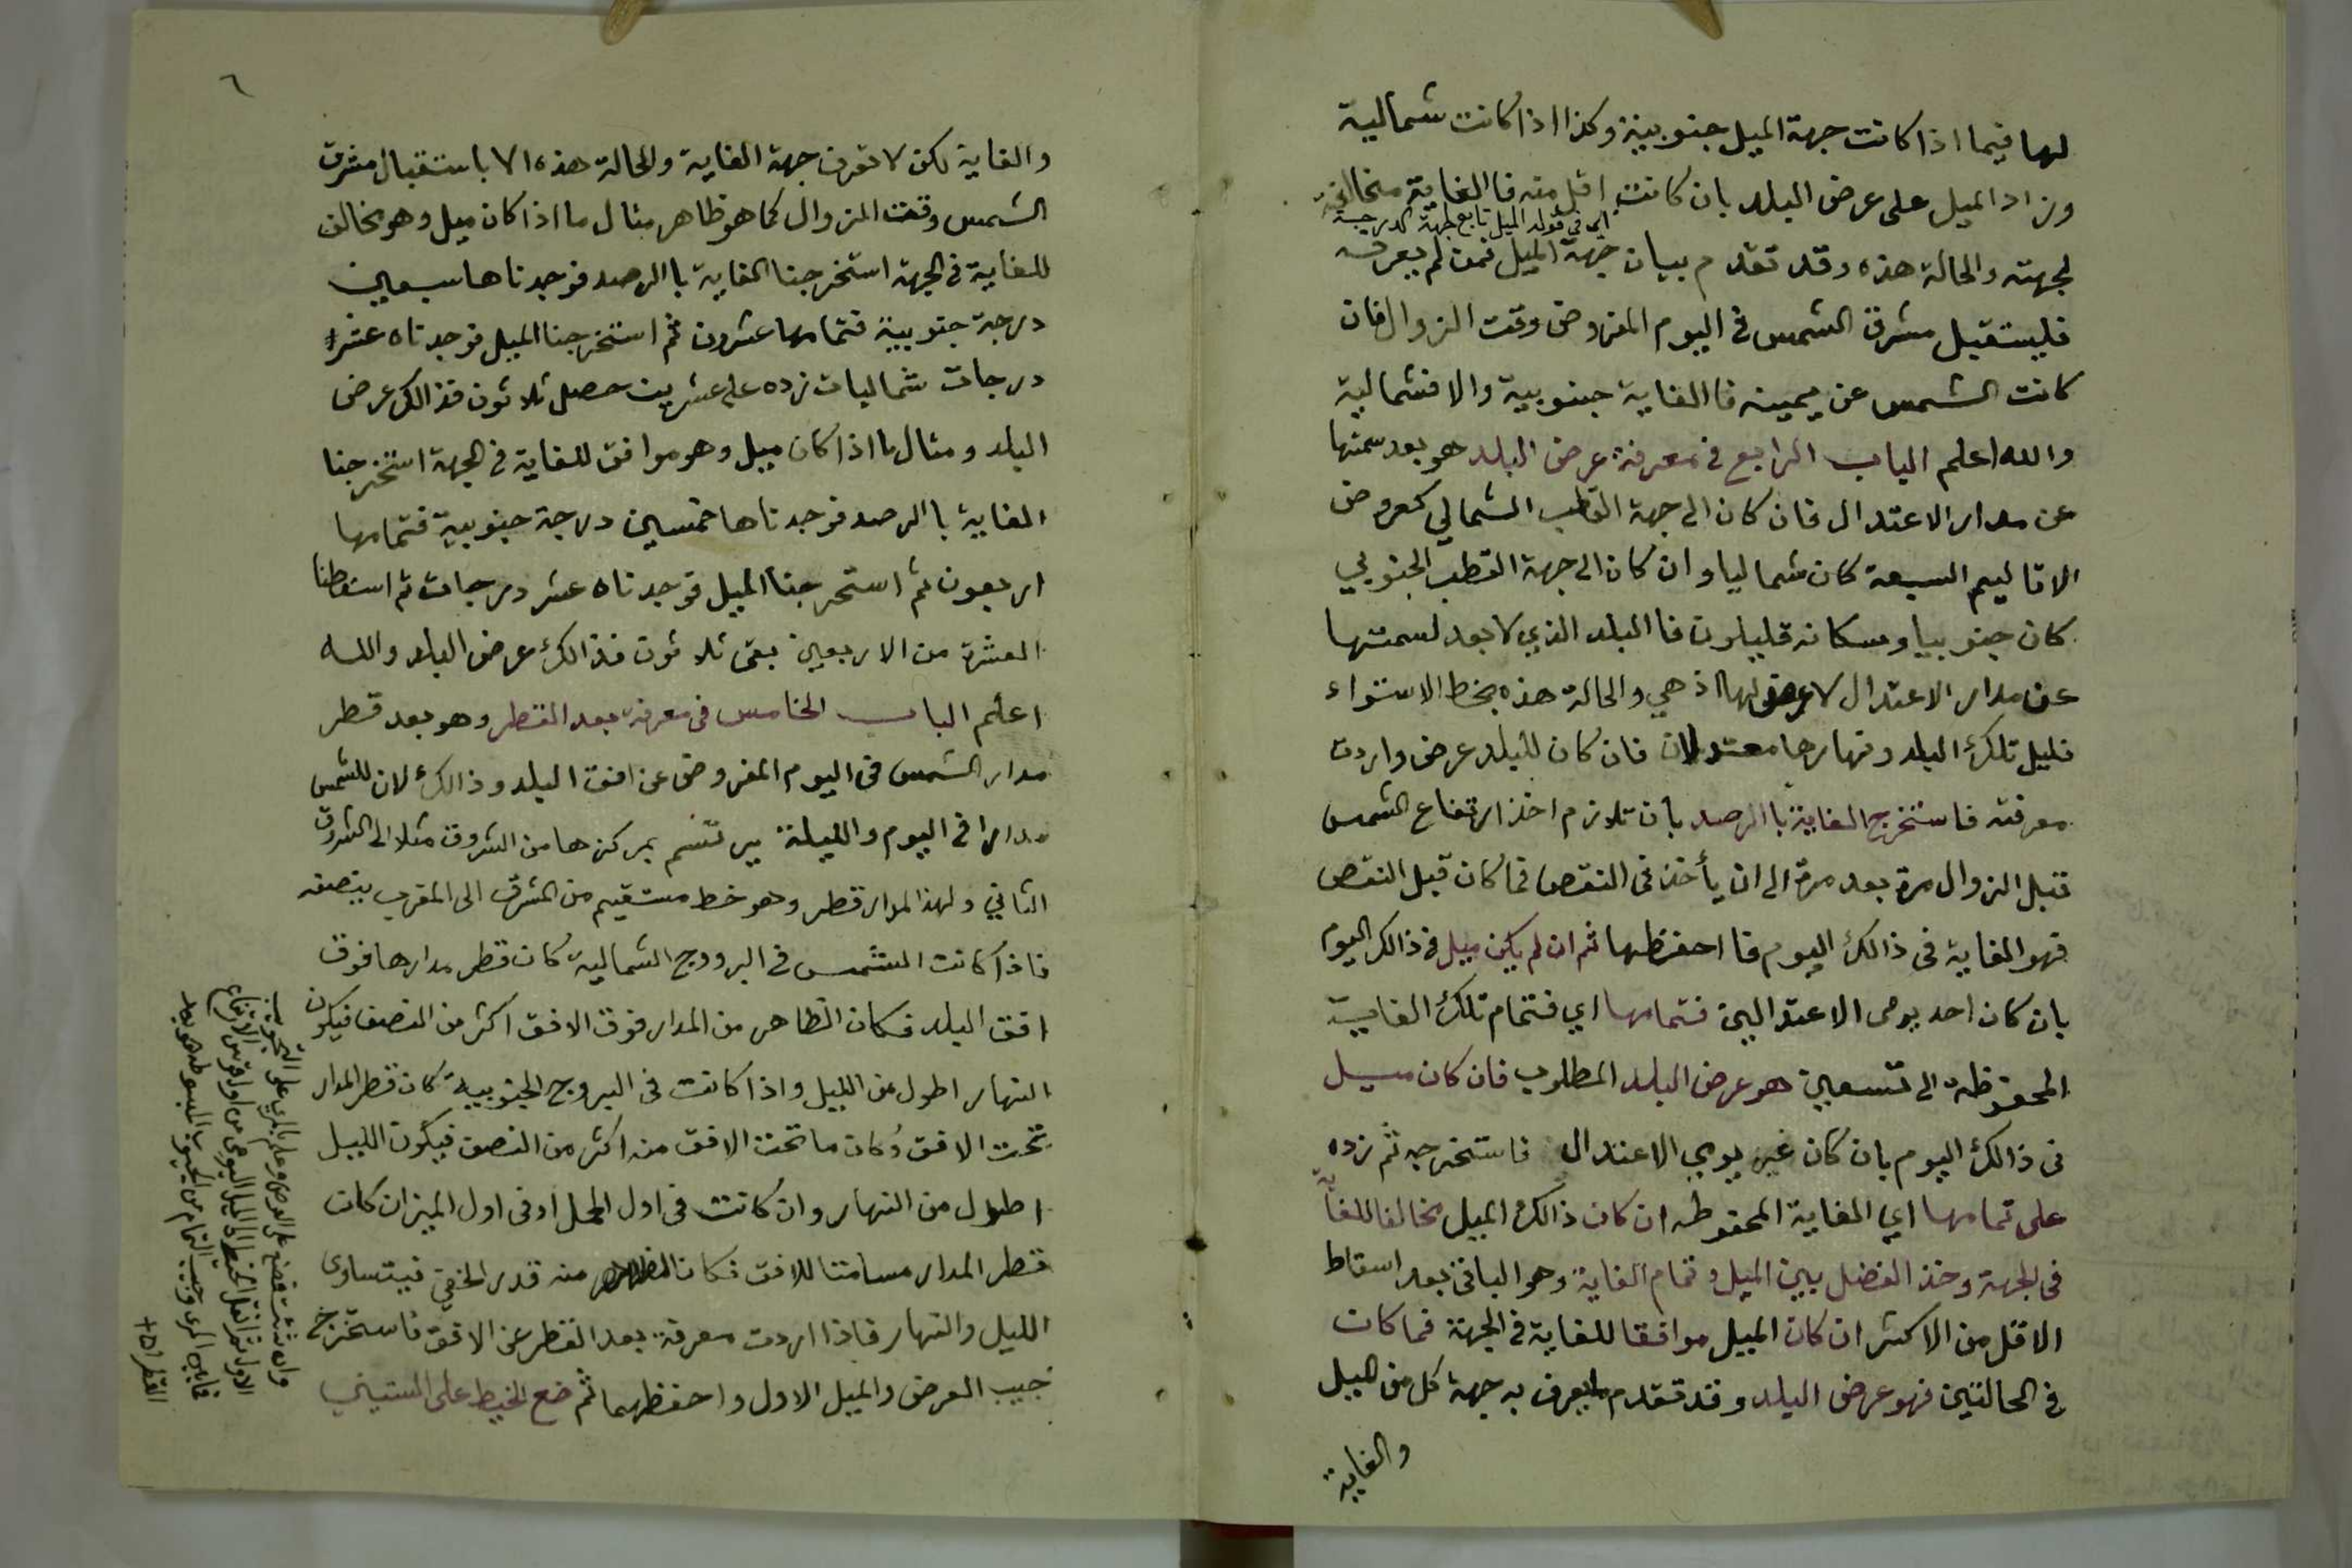 لها فيما اذا كانت جهة الميل جنوبية وكذا اذا كانت شمالية
وزاد الميل على عرض البلد بان كانت اقل منه فا الغاية مخالفة
اي في قوله الميل تابع لجهة الدرجة
لجهته والحالة هذه وقد تقدم بيان جهة الميل فمن لم يعرفه
فليستقبل مشرق الشمس في اليوم المفروض وقت الزوال فان
كانت الشمس عن يمينه فا الغاية جنوبية والا فشمالية
والله اعلم الباب الرابع في معرفة عرض البلد هو بعد سمتها
عن مدار الاعتدال فان كان الى جهة القطب الشمالي كعروض
الاقاليم السبعة كان شماليا وان كان الى جهة القطب الجنوبي
كان جنوبيا وسكانه قليلون فا البلد الذي لا بعد لسمتها
عن مدار الاعتدال لا عرض لها اذ هي والحالة هذه بخط الاستواء
فليل تلك البلد ونهارها معتدلان فان كان للبلد عرض واردت
معرفته فاستخرج الغاية با الرصد بان تلازم اخذ ارتفاع الشمس
قبل الزوال مرة بعد مرة الى ان يأخذ في النقص فما كان قبل النقص
فهو الغاية في ذالك اليوم فا احفظها ثم ان لم يكن ميل في ذالك اليوم
بان كان احد يومي الاعتدالين فتمامها اي فتمام تلك الغاية
المحفوظة الى تسعين هو عرض البلد المطلوب فان كان ميل
في ذالك اليوم بان كان غير يومي الاعتدال فاستخرجه ثم زده
على تمامها اي الغاية المحفوظه ان كان ذالك الميل مخالفا للغاية
في الجهة وخذ الفضل بين الميل وتمام الغاية وهو الباقي بعد اسقاط
الاقل من الاكثر ان كان الميل موافقا للغاية في الجهة فما كان
في الحالتين فهو عرض البلد وقد تقدم ما يعرف به جهة كل من الميل
والغاية
٦
والغاية لكن لا تعرف جهة الغاية والحالة هذه الا باستقبال مشرق
الشمس وقت الزوال كما هو ظاهر مثال ما اذا كان ميل وهو مخالف
للغاية في الجهة استخرجنا الغاية با الرصد فوجدناها سبعين
درجة جنوبية فتمامها عشرون ثم استخرجنا الميل فوجدناه عشر
درجات شماليات زده على عشرين حصل ثلاثون فذالك عرض
البلد ومثال ما اذا كان ميل وهو موافق للغاية في الجهة استخرجنا
الغاية با الرصد فوجدناها خمسين درجة جنوبية فتمامها
اربعون ثم استخرجنا الميل فوجدناه عشر درجات ثم اسقطنا
العشرة من الاربعين بقى ثلاثون فذالك عرض البلد والله
اعلم الباب الخامس في معرفة بعد القطر وهو بعد قطر
مدار الشمس في اليوم المفروض عن افق البلد وذالك لان للشمس
مدارا في اليوم والليلة يرتسم بمركزها من الشروق مثلا الى الشروق
الثاني ولهذا المدار قطر وهو خط مستقيم من المشرق الى المغرب ينصفه
فاذا كانت الشمس في البروج الشمالية كان قطر مدارها فوق
افق البلد فكان الظاهر من المدار فوق الافق اكثر من النصف فيكون
النهار اطول من الليل واذا كانت في البروج الجنوبية كان قطر المدار
تحت الافق وكان ما تحت الافق منه اكثر من النصف فيكون الليل
اطول من النهار وان كانت في اول الحمل او في اول الميزان كان
قطر المدار مسامتا للافق فكان الظاهر منه قدر الخفي فيتساوى
الليل والنهار فاذا اردت معرفة بعد القطر عن الافق فاستخرج
جيب العرض والميل الاول واحفظهما ثم ضع الخيط على الستيني
وان شئت فضع على العرض وعلم بالمري على
الاول ثم انقل الخيط الى الميل اليومي من اول قوس الارتفاع
فما بين المرى وجيب التمام من الجيوب المبسوطه هو بعد
القطر اه +